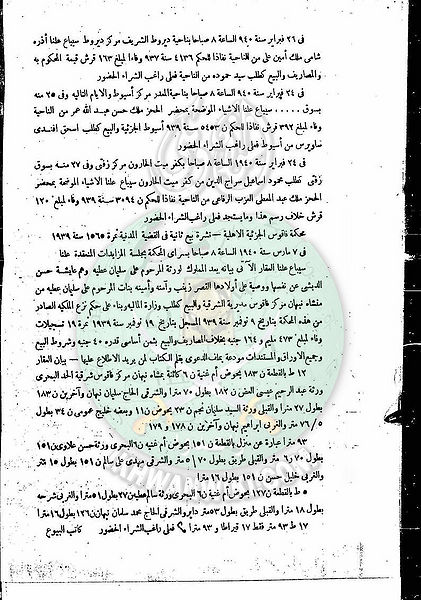 فى ٢٦ فبراير سنة ٩٤٠ الساعة ٨ صباحا بناحية ديروط الشريف مركز ديروط سيباع علنا أذره
شامى ملك أمين على من الناحية نفاذا للحكم ٤١٣٦ سنة ٩٣٧ وفاء لمبلغ ٦٦٣ قرش قيمة المحكوم به
والمصاريف والبيع كطلب سيد حموده من الناحية فعلى راغب الشراء الحضور
فى ٢٤ فبراير سنة ٩٤٠ الساعة ٨ صباحا بناحية المعدر مركز أسيوط والايام التاليه وفى ٢٥ منه
بسوق ..... سيباع علنا الاشياء الموضحة بمحضر الحجز ملك حسن عبد الله عمر من الناحية
وفاء لمبلغ ٣٩٢ قرش نفاذا للحكم ن ٥٤٥٣ سنة ٩٣٩ أسيوط الجزئية والبيع كطلب اسحق افندى
ساويرس من أسيوط فعلى راغب الشراء الحضور
فى ٢٤ فبراير سنة ١٩٤٠ الساعة ٨ صباحا بكفر ميت الحارون مركز زفتى وفى ٢٧ منه بسوق
زفتى كطلب محمود اسماعيل سراج الدين من كفر ميت الحارون سيباع علنا الاشياء الموضحة بمحضر
الحجز ملك عبد المعطى العزب الرفاعى من الناحية نفاذا للحكم ن ٣٠٩٤ سنة ٩٣٩ وفاء لمبلغ ١٢٠
قرش خلاف رسم هذا وما يستجد فعلى راغب الشراء الحضور
محكمة فاقوس الجزئية الاهلية — نشرة بيع ثانية فى القضية المدنية نمرة ١٥٦٥ سنة ١٩٣٩
فى ٧ مارس سنة ٩٤٠ الساعة ٨ صباحا بسراى المحكمة بجلسة المزايدات المنعقدة علنا
سيباع علنا العقار الآتى بيانه بعد المملوك لورثة المرحوم على سلمان عطيه وهم عايشة حسن
الدبشى عن نفسها ووصية على أولادها القصر زينب وآمنه وأمينه بنات المرحوم على سلمان عطيه من
منشاه نبهان مركز فاقوس مديرية الشرقية والبيع كطلب وزارة المالية وبناء على حكم نزع الملكية الصادر
من هذه المحكمة بتاريخ ٩ نوفمبر سنة ٩٣٩ المسجل بتاريخ ١٩ نوفمبر سنة ١٩٣٩ نمرة ١٩ تسجيلات
وفاء لمبلغ ٤٧٣ مليم و ١٦٤ جنيه بخلاف المصاريف والبيع بثمن أساسى قدره ٤٠ جنيه وشروط البيع
وجميع الاوراق والمستندات مودعة بملف الدعوى بقلم الكتاب لمن يريد الاطلاع عليها — بيان العقار
١٢ ط بالقطعة ن ١٨٣ بحوض أم غنية ن ٦ كائنة بمنشاه نبهان مركز فاقوس شرقية الحد البحرى
ورثة عبد الرحيم عيسى ن ١٨٢ بطول ٧٠ مترا والشرقى الحاج سلمان نبهان وآخرين ن ١٨٣
بطول ٢٧ مترا والقبلى ورثة السيد سلمان نجم ن ٢٣ بحوض ن ١١ وبعضه خليج عمومى ن ٣٤ بطول
٧٦/٥ متر والغربى ابراهيم نبهان وآخرين ن ١٧٨ و ١٧٩
٩٣ مترا عبارة عن منزل بالقطعة ن ١٥١ بحوض أم غنية ن ٦ البحرى ورثة حسن علاوى ن ١٥١
بطول ٦٠٧٠ متر والقبلى طريق بطول ٥/٧٠ متر والشرقى مهدى على سالم ن ١٥١ بطول ١٥ متر
والغربى خليل حسن ن ١٥١ بطول ١٦ مترا
٥ ط بالقطعة ن ١٢٧ بحوض أم غنية ن ٦ البحرى ورثة سالم عطيه ن ١٢٧ بطول ٥١ مترا والشرقى شرحه
بطول ١٨ مترا والقبلى طريق بطول ٥٣ متر داير والشرقى الحاج محمد سلمان نبهان ن ١٢٦ بطول ١٦ مترا
١٧ ط ٩٣ متر فقط ١٧ قيراطا و ٩٣ مترا فعلى راغب الشراء الحضور كاتب البيوع